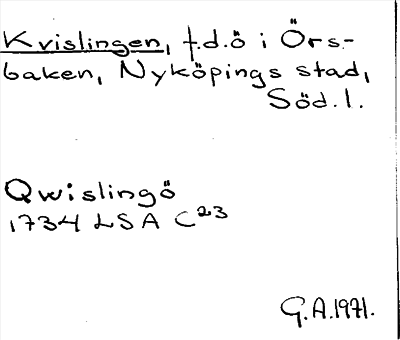 Kvislingen, f.d.ö i Örs-
baken, Nyköpings stad,
Söd.l.
Qwislingö
1734 LSA C23
G.A.1971.